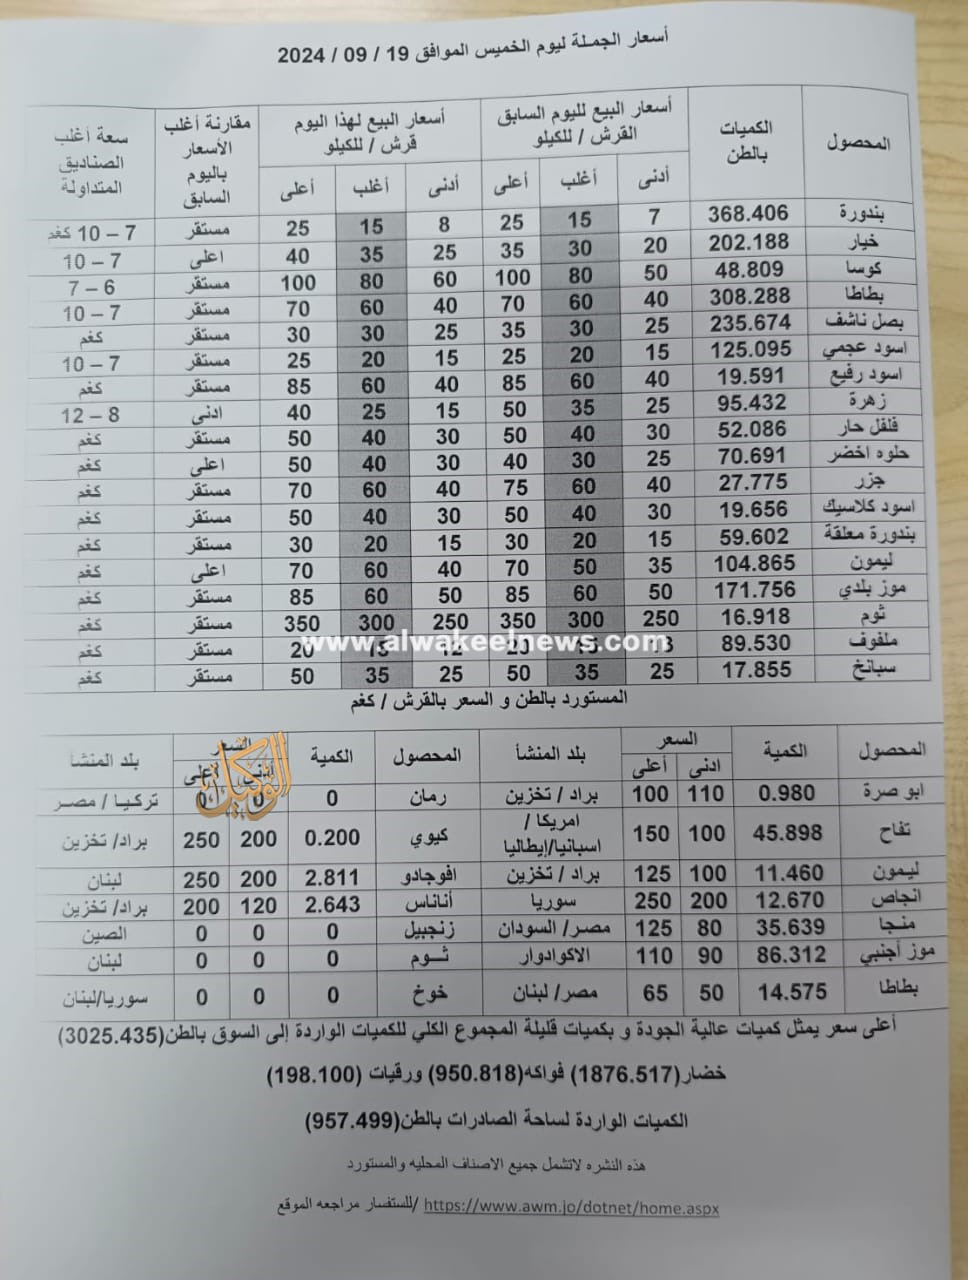 أسعار الجملة ليوم الخميس الموافق 19 / 09 / 2024
المحصول | الكميات بالطن | أسعار البيع لليوم السابق القرش / للكيلو | أسعار البيع لهذا اليوم قرش / للكيلو | مقارنة أغلب الأسعار باليوم السابق | سعة أغلب الصناديق المتداولة
أدنى | أغلب | أعلى | أدنى | أغلب | أعلى
بندورة | 368.406 | 7 | 15 | 25 | 8 | 15 | 25 | مستقر | 7 – 10 كغم
خيار | 202.188 | 20 | 30 | 35 | 25 | 35 | 40 | اعلى | 7 – 10
كوسا | 48.809 | 50 | 80 | 100 | 60 | 80 | 100 | مستقر | 6 – 7
بطاطا | 308.288 | 40 | 60 | 70 | 40 | 60 | 70 | مستقر | 7 – 10
بصل ناشف | 235.674 | 25 | 30 | 35 | 25 | 30 | 30 | مستقر | كغم
اسود عجمي | 125.095 | 15 | 20 | 25 | 15 | 20 | 25 | مستقر | 7 – 10
اسود رفيع | 19.591 | 40 | 60 | 85 | 40 | 60 | 85 | مستقر | كغم
زهرة | 95.432 | 25 | 35 | 50 | 15 | 25 | 40 | ادنى | 8 – 12
فلفل حار | 52.086 | 30 | 40 | 50 | 30 | 40 | 50 | مستقر | كغم
حلوه اخضر | 70.691 | 25 | 30 | 40 | 30 | 40 | 50 | اعلى | كغم
جزر | 27.775 | 40 | 60 | 75 | 40 | 60 | 70 | مستقر | كغم
اسود كلاسيك | 19.656 | 30 | 40 | 50 | 30 | 40 | 50 | مستقر | كغم
بندورة معلقة | 59.602 | 15 | 20 | 30 | 15 | 20 | 30 | مستقر | كغم
ليمون | 104.865 | 35 | 50 | 70 | 40 | 60 | 70 | اعلى | كغم
موز بلدي | 171.756 | 50 | 60 | 85 | 50 | 60 | 85 | مستقر | كغم
ثوم | 16.918 | 250 | 300 | 350 | 250 | 300 | 350 | مستقر | كغم
www.alwakeelnews.com
ملفوف | 89.530 | 15 | 20 | 12 | 15 | 20 | مستقر | كغم
سبانخ | 17.855 | 25 | 35 | 50 | 25 | 35 | 50 | مستقر | كغم
المستورد بالطن و السعر بالقرش / كغم
المحصول | الكمية | السعر | بلد المنشأ | المحصول | الكمية | السعر | بلد المنشأ
ادنى | أعلى | أدنى | أعلى
الوكيل
ابو صرة | 0.980 | 110 | 100 | براد / تخزين | رمان | 0 | 0 | 0 | تركيا / مصر
تفاح | 45.898 | 100 | 150 | امريكا / اسبانيا/إيطاليا | كيوي | 0.200 | 200 | 250 | براد/ تخزين
ليمون | 11.460 | 100 | 125 | براد / تخزين | افوجادو | 2.811 | 200 | 250 | لبنان
انجاص | 12.670 | 200 | 250 | سوريا | أناناس | 2.643 | 120 | 200 | براد/ تخزين
منجا | 35.639 | 80 | 125 | مصر/ السودان | زنجبيل | 0 | 0 | 0 | الصين
موز أجنبي | 86.312 | 90 | 110 | الاكوادوار | ثـوم | 0 | 0 | 0 | لبنان
بطاطا | 14.575 | 50 | 65 | مصر/ لبنان | خوخ | 0 | 0 | 0 | سوريا/لبنان
أعلى سعر يمثل كميات عالية الجودة و بكميات قليلة المجموع الكلي للكميات الواردة إلى السوق بالطن(3025.435)
خضار(1876.517) فواكه(950.818) ورقيات (198.100)
الكميات الواردة لساحة الصادرات بالطن(957.499)
هذه النشره لاتشمل جميع الاصناف المحليه والمستورد
للستفسار مراجعه الموقع/ https://www.awm.jo/dotnet/home.aspx